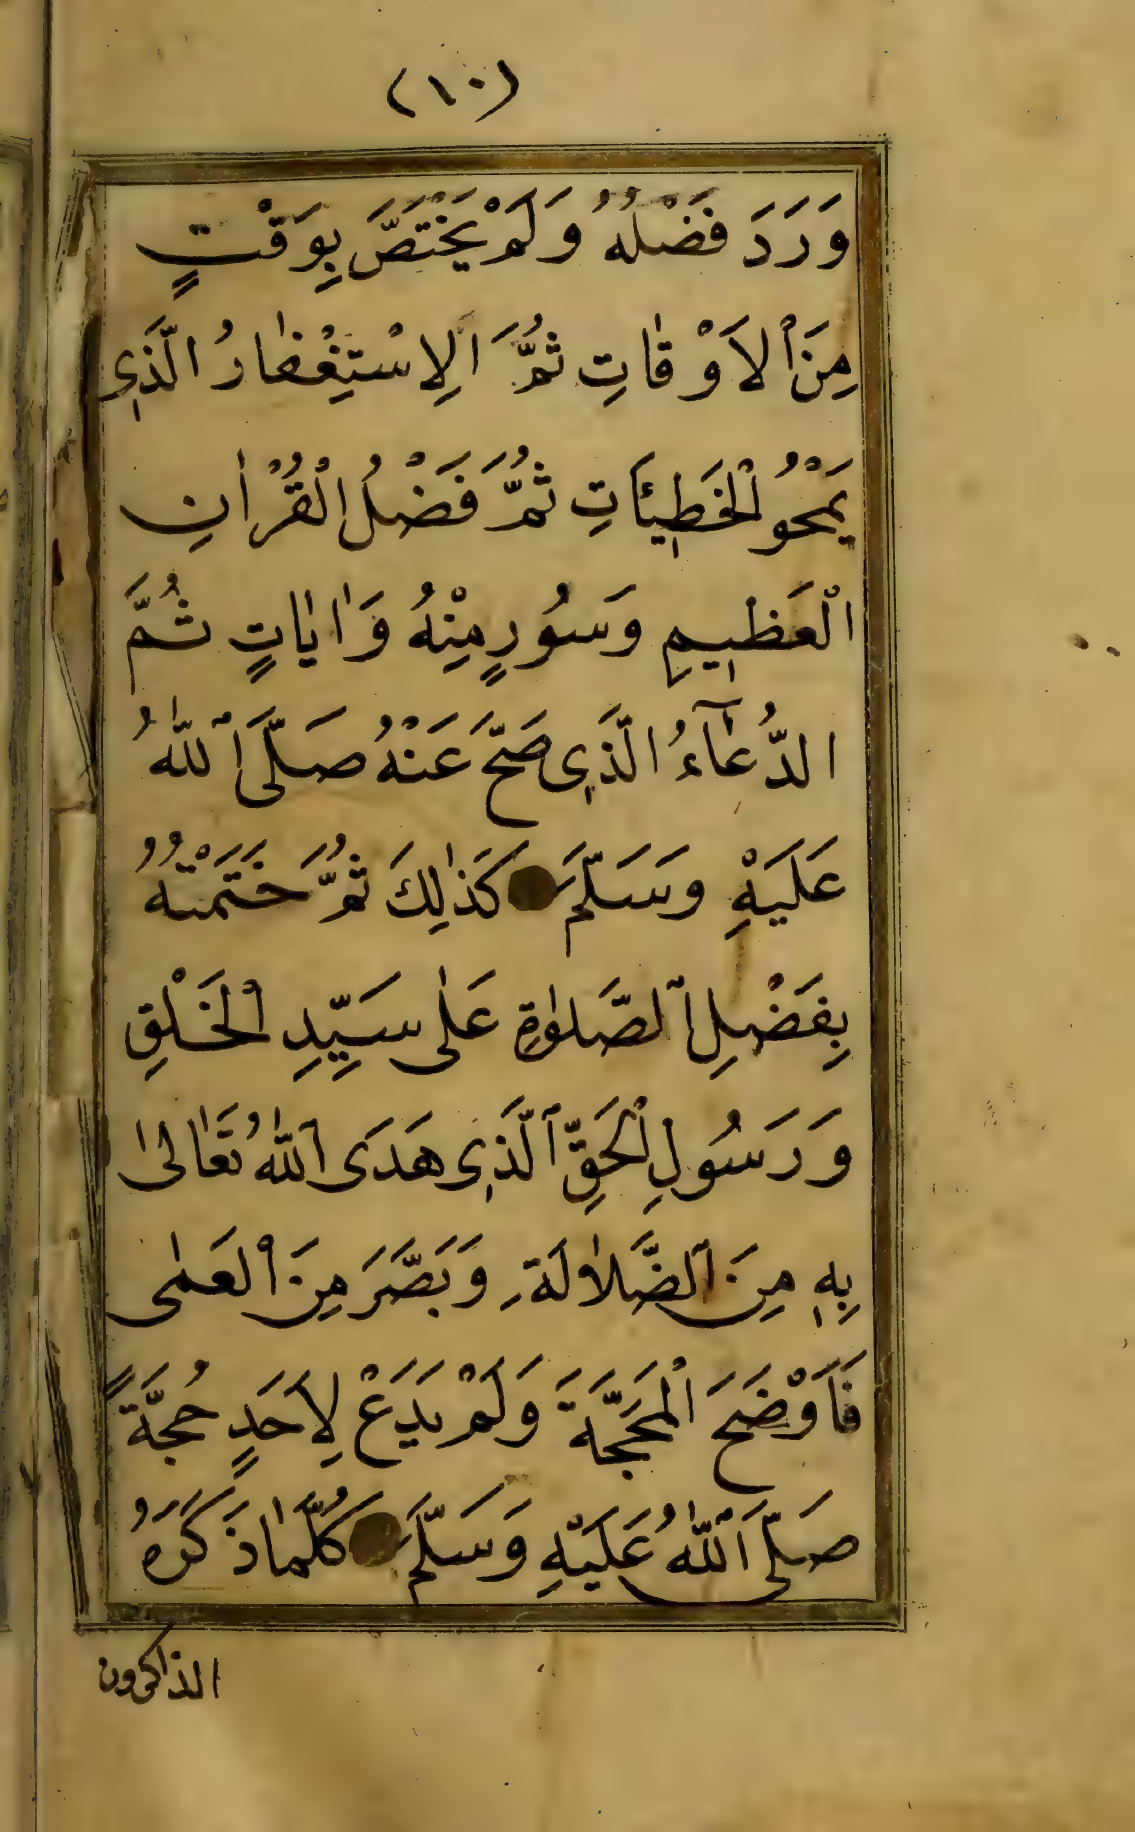 (١٠)
وَرَدَ فَضْلُهُ وَلَمْ يَخْتَصَّ بِوَقْتٍ
مِنَ ٱلاَوْقَاتِ ثُمَّ اَلِاسْتِغْفَارُ الَّذِي
يَمْحُو ٱلْخَطِيئَاتِ ثُمَّ فَضْلُ الْقُرْاٰنِ
الْعَظِيمِ وَسُوَرٍ مِنْهُ وَاٰيَاتٍ ثُمَّ
الدُّعَآءُ الَّذِي صَحَّ عَنْهُ صَلَّى ٱللّٰهُ
عَلَيْهِ وَسَلَّمَ كَذٰلِكَ ثُمَّ خَتَمْتُهُ
بِفَضْلِ ٱلصَّلٰوةِ عَلٰى سَيِّدِ ٱلْخَلْقِ
وَرَسُولِ ٱلْحَقِّ ٱلَّذِي هَدَى ٱللّٰهُ تَعَالىٰ
بِهِ مِنَ ٱلضَّلاٰلَةِ وَبَصَّرَ مِنَ ٱلْعَمٰى
فَاَوْضَحَ الْمَحَجَّةَ وَلَمْ يَدَعْ لِاَحَدٍ حُجَّةً
صَلَّى ٱللّٰهُ عَلَيْهِ وَسَلَّمَ كُلَّمَا ذَكَرَهُ
الذاكرون